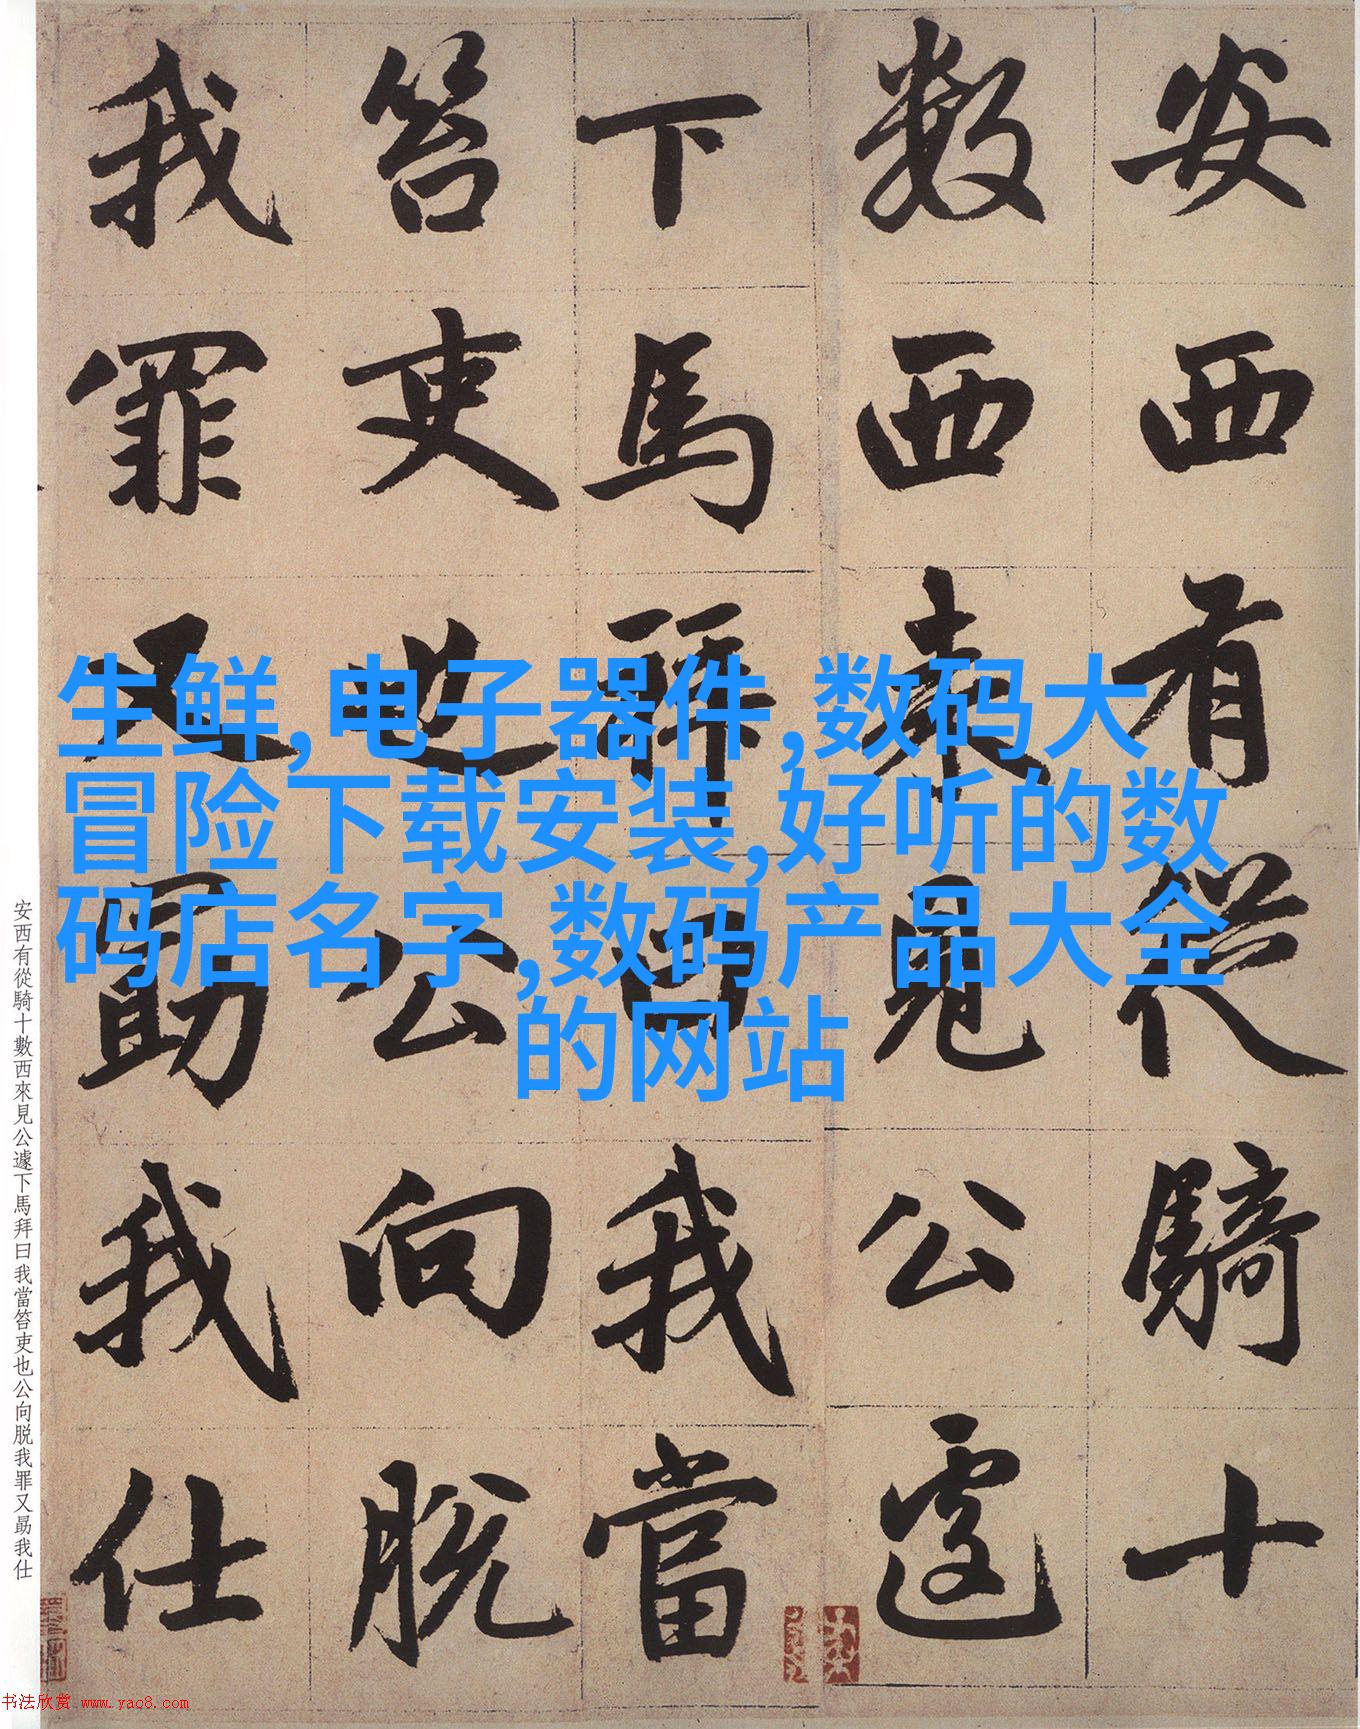 安西有從騎十
數西来見公遽
下馬拜曰我當
笞吏也公向脱
我罪又勗我仕
生鲜,电子器件,数码大
冒险下载安装,好听的数
码店名字,数码产品大全
的网站
安西有從騎十數西來見公遽下馬拜曰我當笞吏也公向脱我罪又勗我仕
书法欣赏 www.yac8.com